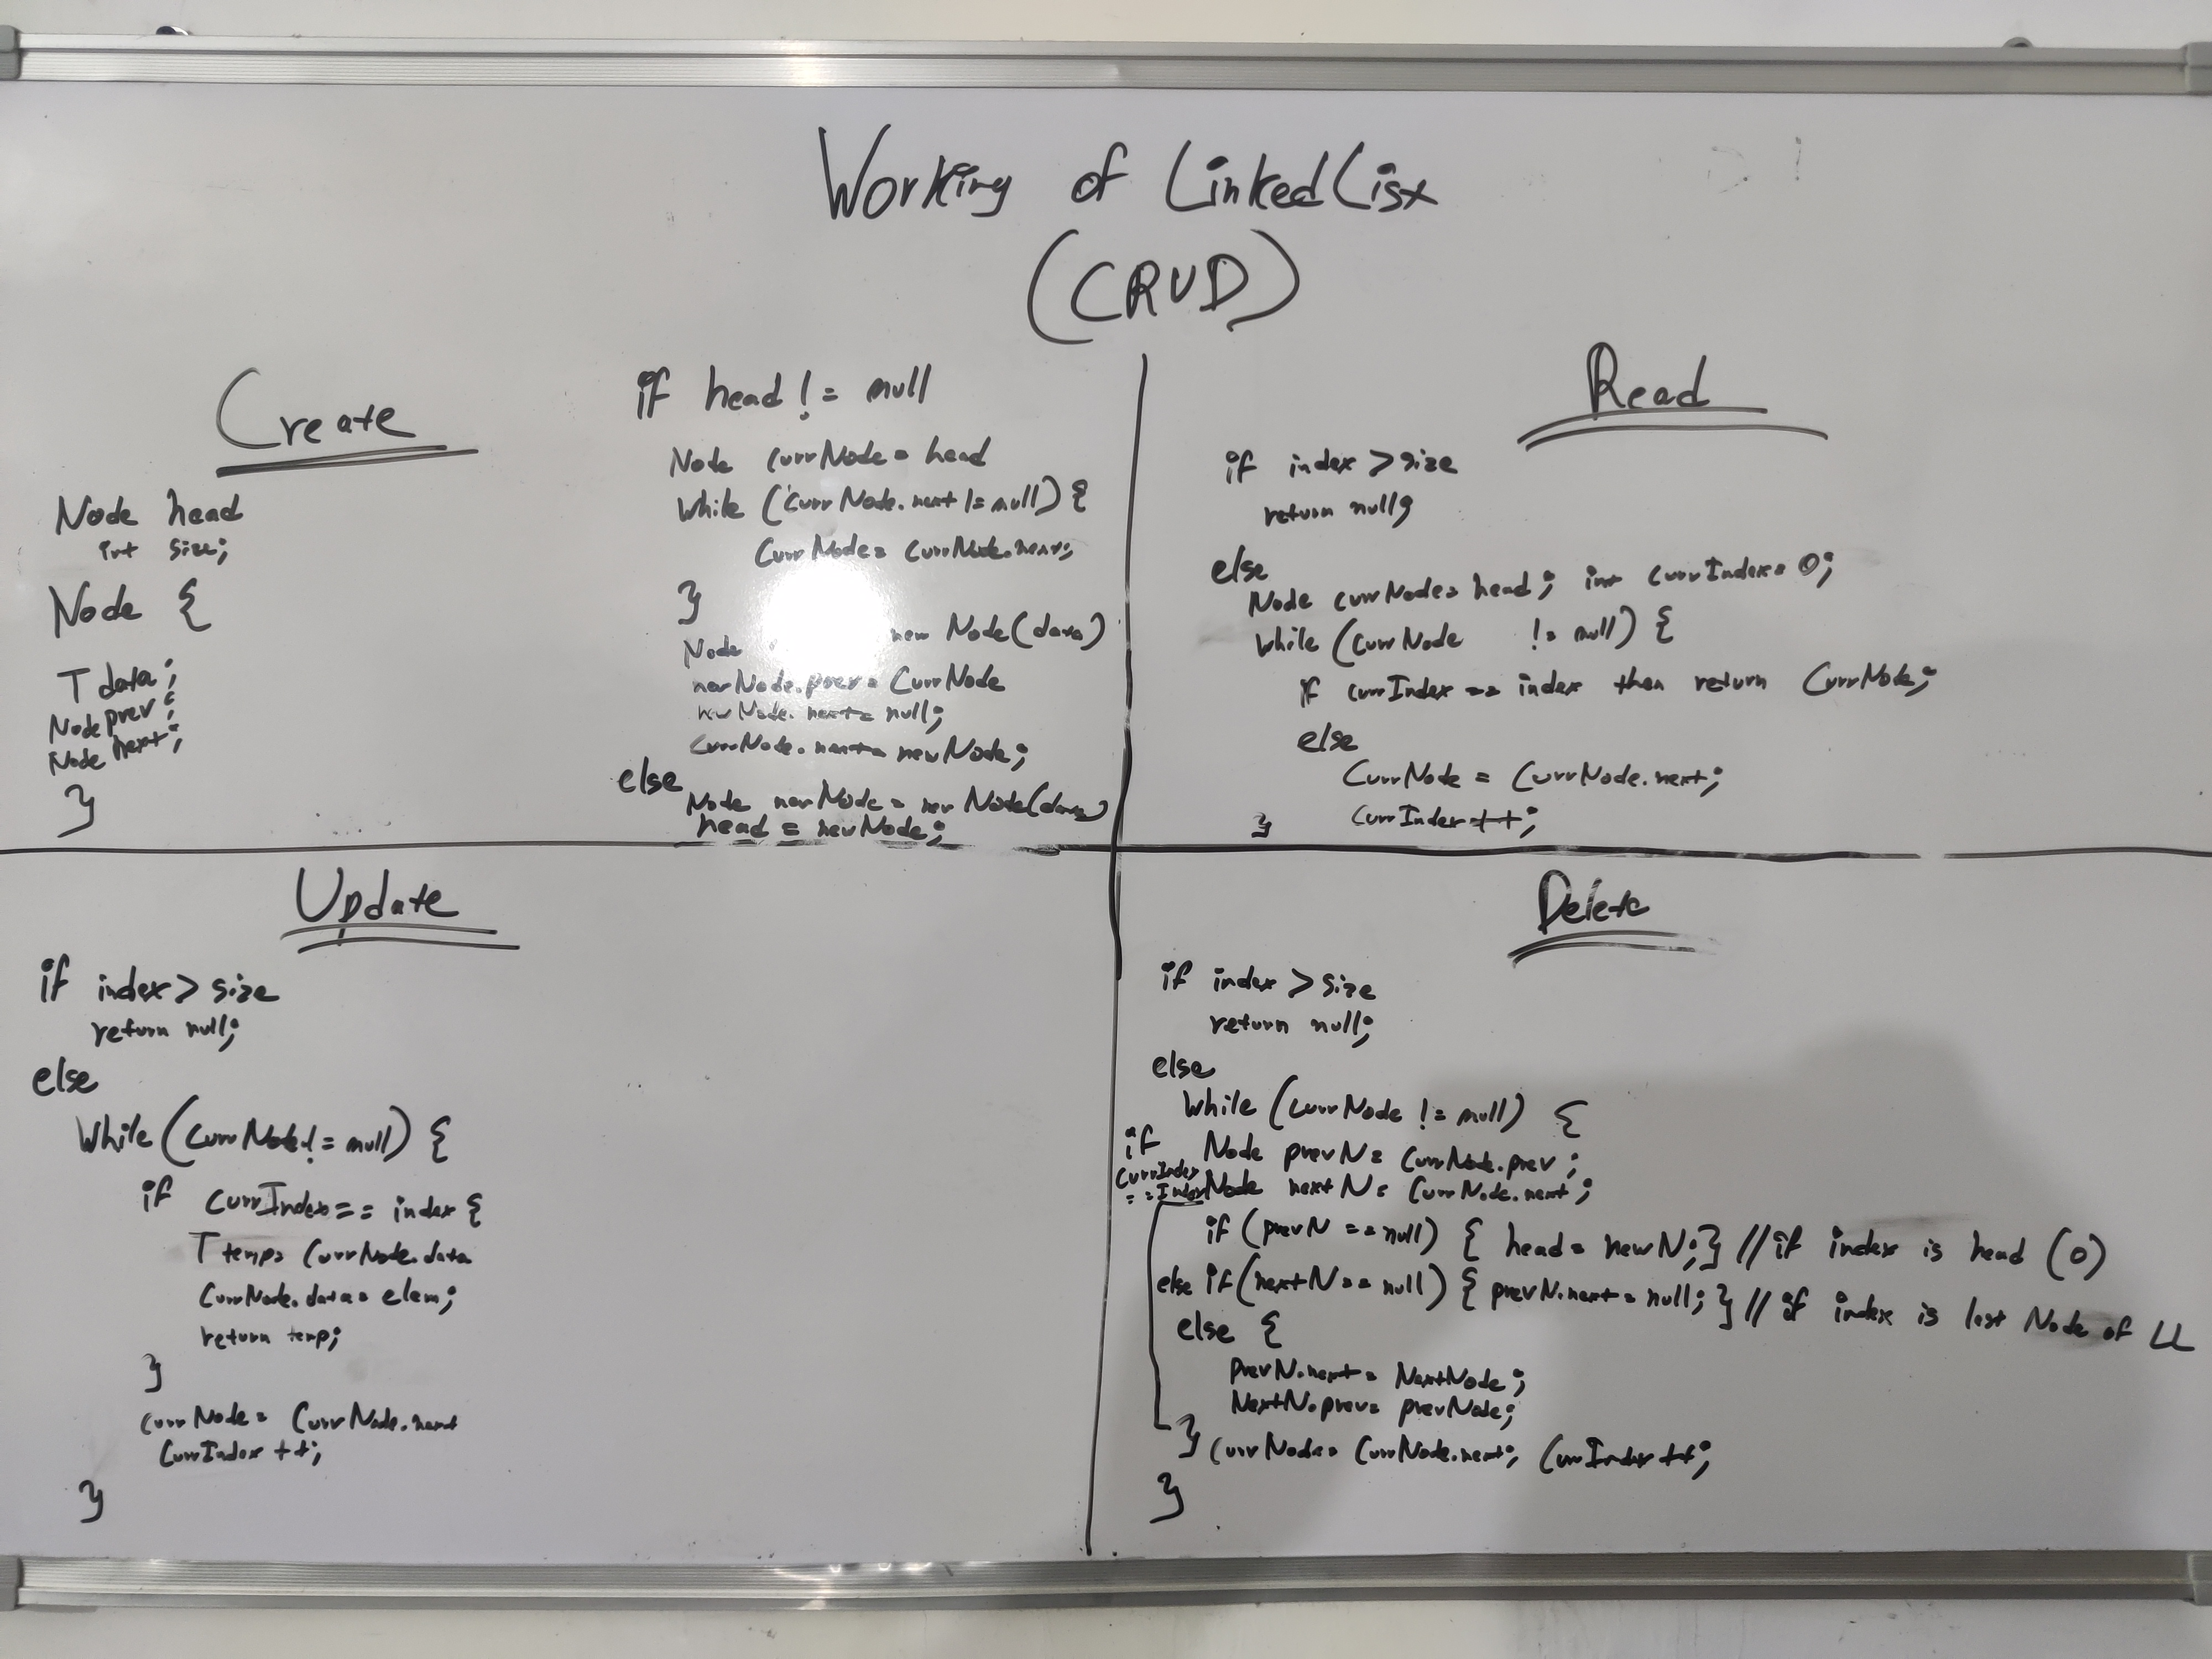 Working of LinkedList
(CRUD)
Create
Node head
int size;
Node {
T data;
Node prev;
Node next;
}
if head != null
Node CurrNode = head
While (CurrNode.next != null) {
CurrNode = CurrNode.next;
}
Node new Node(data)
newNode.prev = CurrNode
newNode.next = null;
CurrNode.next = newNode;
else
Node newNode = new Node(data)
head = newNode;
Read
if index > size
return null;
else
Node currNode = head; int CurrIndex = 0;
While (CurrNode != null) {
if currIndex == index then return CurrNode;
else
CurrNode = CurrNode.next;
CurrIndex ++;
}
Update
if index > size
return null;
else
While (CurrNode != null) {
if CurrIndex == index {
T temp = CurrNode.data
CurrNode.data = elem;
return temp;
}
CurrNode = CurrNode.next
CurrIndex ++;
}
Delete
if index > size
return null;
else
While (CurrNode != null) {
if CurrIndex == Index
Node prevN = CurrNode.prev;
Node nextN = CurrNode.next;
if (prevN == null) { head = newN; } // if index is head (0)
else if (nextN == null) { prevN.next = null; } // if index is last Node of LL
else {
prevN.next = NextNode;
NextN.prev = prevNode;
}
CurrNode = CurrNode.next; CurrIndex ++;
}